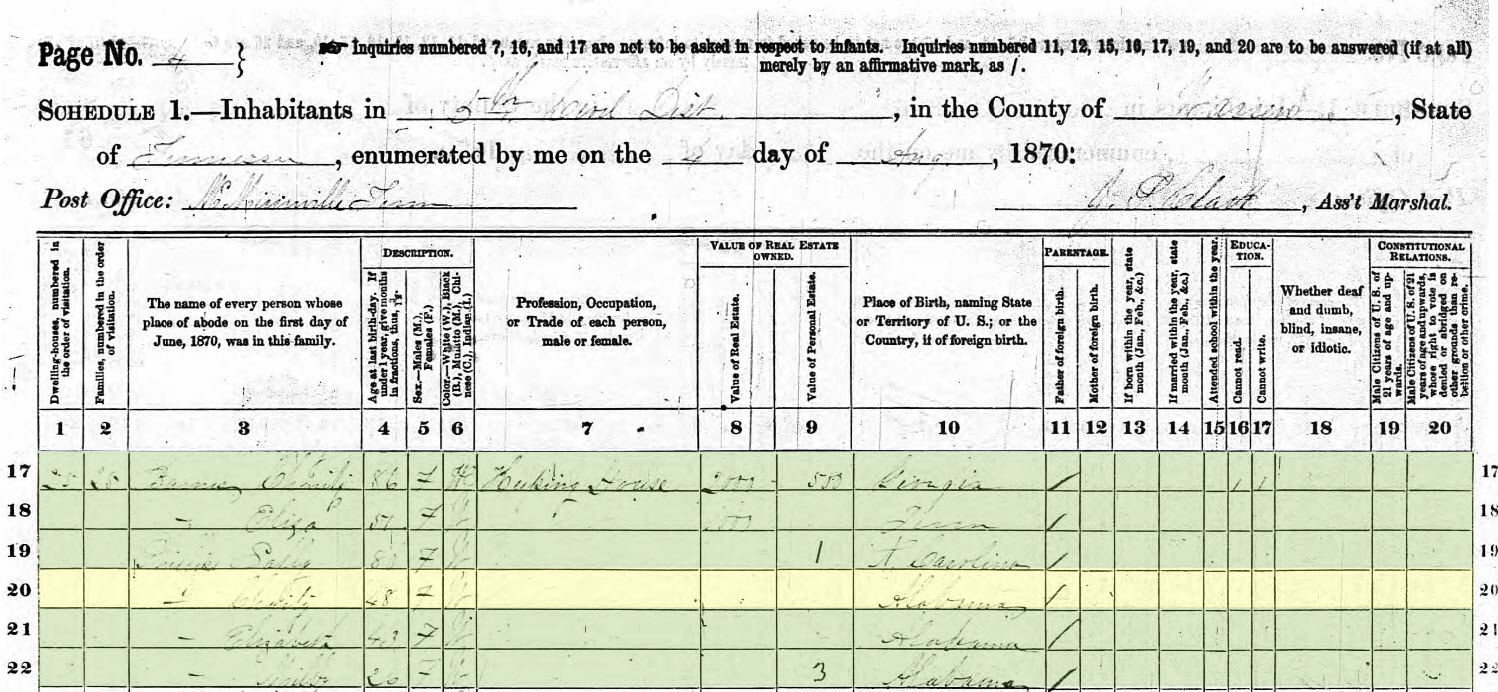 Page No. 4 } Inquiries numbered 7, 16, and 17 are not to be asked in respect to infants. Inquiries numbered 11, 12, 15, 16, 17, 19, and 20 are to be answered (if at all)
merely by an affirmative mark, as /.
SCHEDULE 1.—Inhabitants in 5th Civil Dist., in the County of Warren, State
of Tennessee, enumerated by me on the day of Aug, 1870.
Post Office: McMinnville Tenn Clark, Ass't Marshal.
Dwelling-houses, numbered in the order of visitation.
Families, numbered in the order of visitation.
The name of every person whose place of abode on the first day of June, 1870, was in this family.
DESCRIPTION.
Age at last birth-day. If under 1 year, give months in fractions, thus, 3/12.
Sex.—Males (M.), Females (F.)
Color.—White (W.), Black (B.), Mulatto (M.), Chinese (C.), Indian (I.)
Profession, Occupation, or Trade of each person, male or female.
VALUE OF REAL ESTATE OWNED.
Value of Real Estate.
Value of Personal Estate.
Place of Birth, naming State or Territory of U. S.; or the Country, if of foreign birth.
PARENTAGE.
Father of foreign birth.
Mother of foreign birth.
If born within the year, state month (Jan., Feb., &c.)
If married within the year, state month (Jan., Feb., &c.)
Attended school within the year.
EDUCATION.
Cannot read.
Cannot write.
Whether deaf and dumb, blind, insane, or idiotic.
CONSTITUTIONAL RELATIONS.
Male Citizens of U. S. of 21 years of age and upwards.
Male Citizens of U. S. of 21 years of age and upwards, whose right to vote is denied or abridged on other grounds than rebellion or other crime.
1 2 3 4 5 6 7 8 9 10 11 12 13 14 15 16 17 18 19 20
17 Barnes Charity 86 F W Keeping House 2000 500 Georgia / 1 1 17
18 — Eliza F W Tenn / 18
19 Sally F W 1 N. Carolina / 19
20 — Charity 48 F W Alabama / 20
21 — Elizabeth 43 F W Alabama / 21
22 — 26 F W 3 Alabama / 22